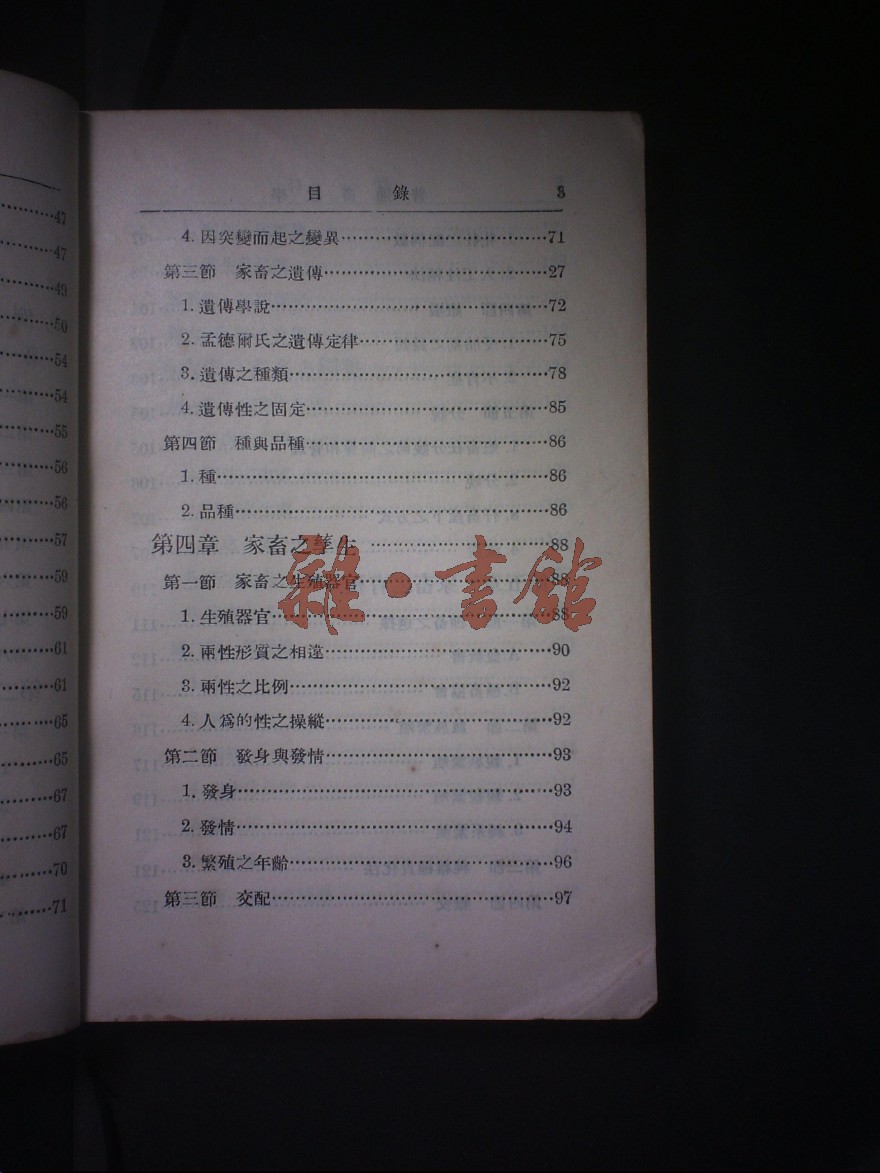 47
47
49
50
54
54
55
56
56
57
59
59
61
61
65
65
67
67
70
71
目 錄 3
4. 因突變而起之變異……………71
第三節 家畜之遺傳……………27
1. 遺傳學說……………72
2. 孟德爾氏之遺傳定律……………75
3. 遺傳之種類……………78
4. 遺傳性之固定……………85
第四節 種與品種……………86
1. 種……………86
2. 品種……………86
第四章 家畜之孳生……………88
第一節 家畜之生殖器官……………88
1. 生殖器官……………88
2. 兩性形質之相違……………90
3. 兩性之比例……………92
4. 人爲的性之操縱……………92
第二節 發身與發情……………93
1. 發身……………93
2. 發情……………94
3. 繁殖之年齡……………96
第三節 交配……………97
雜·書館